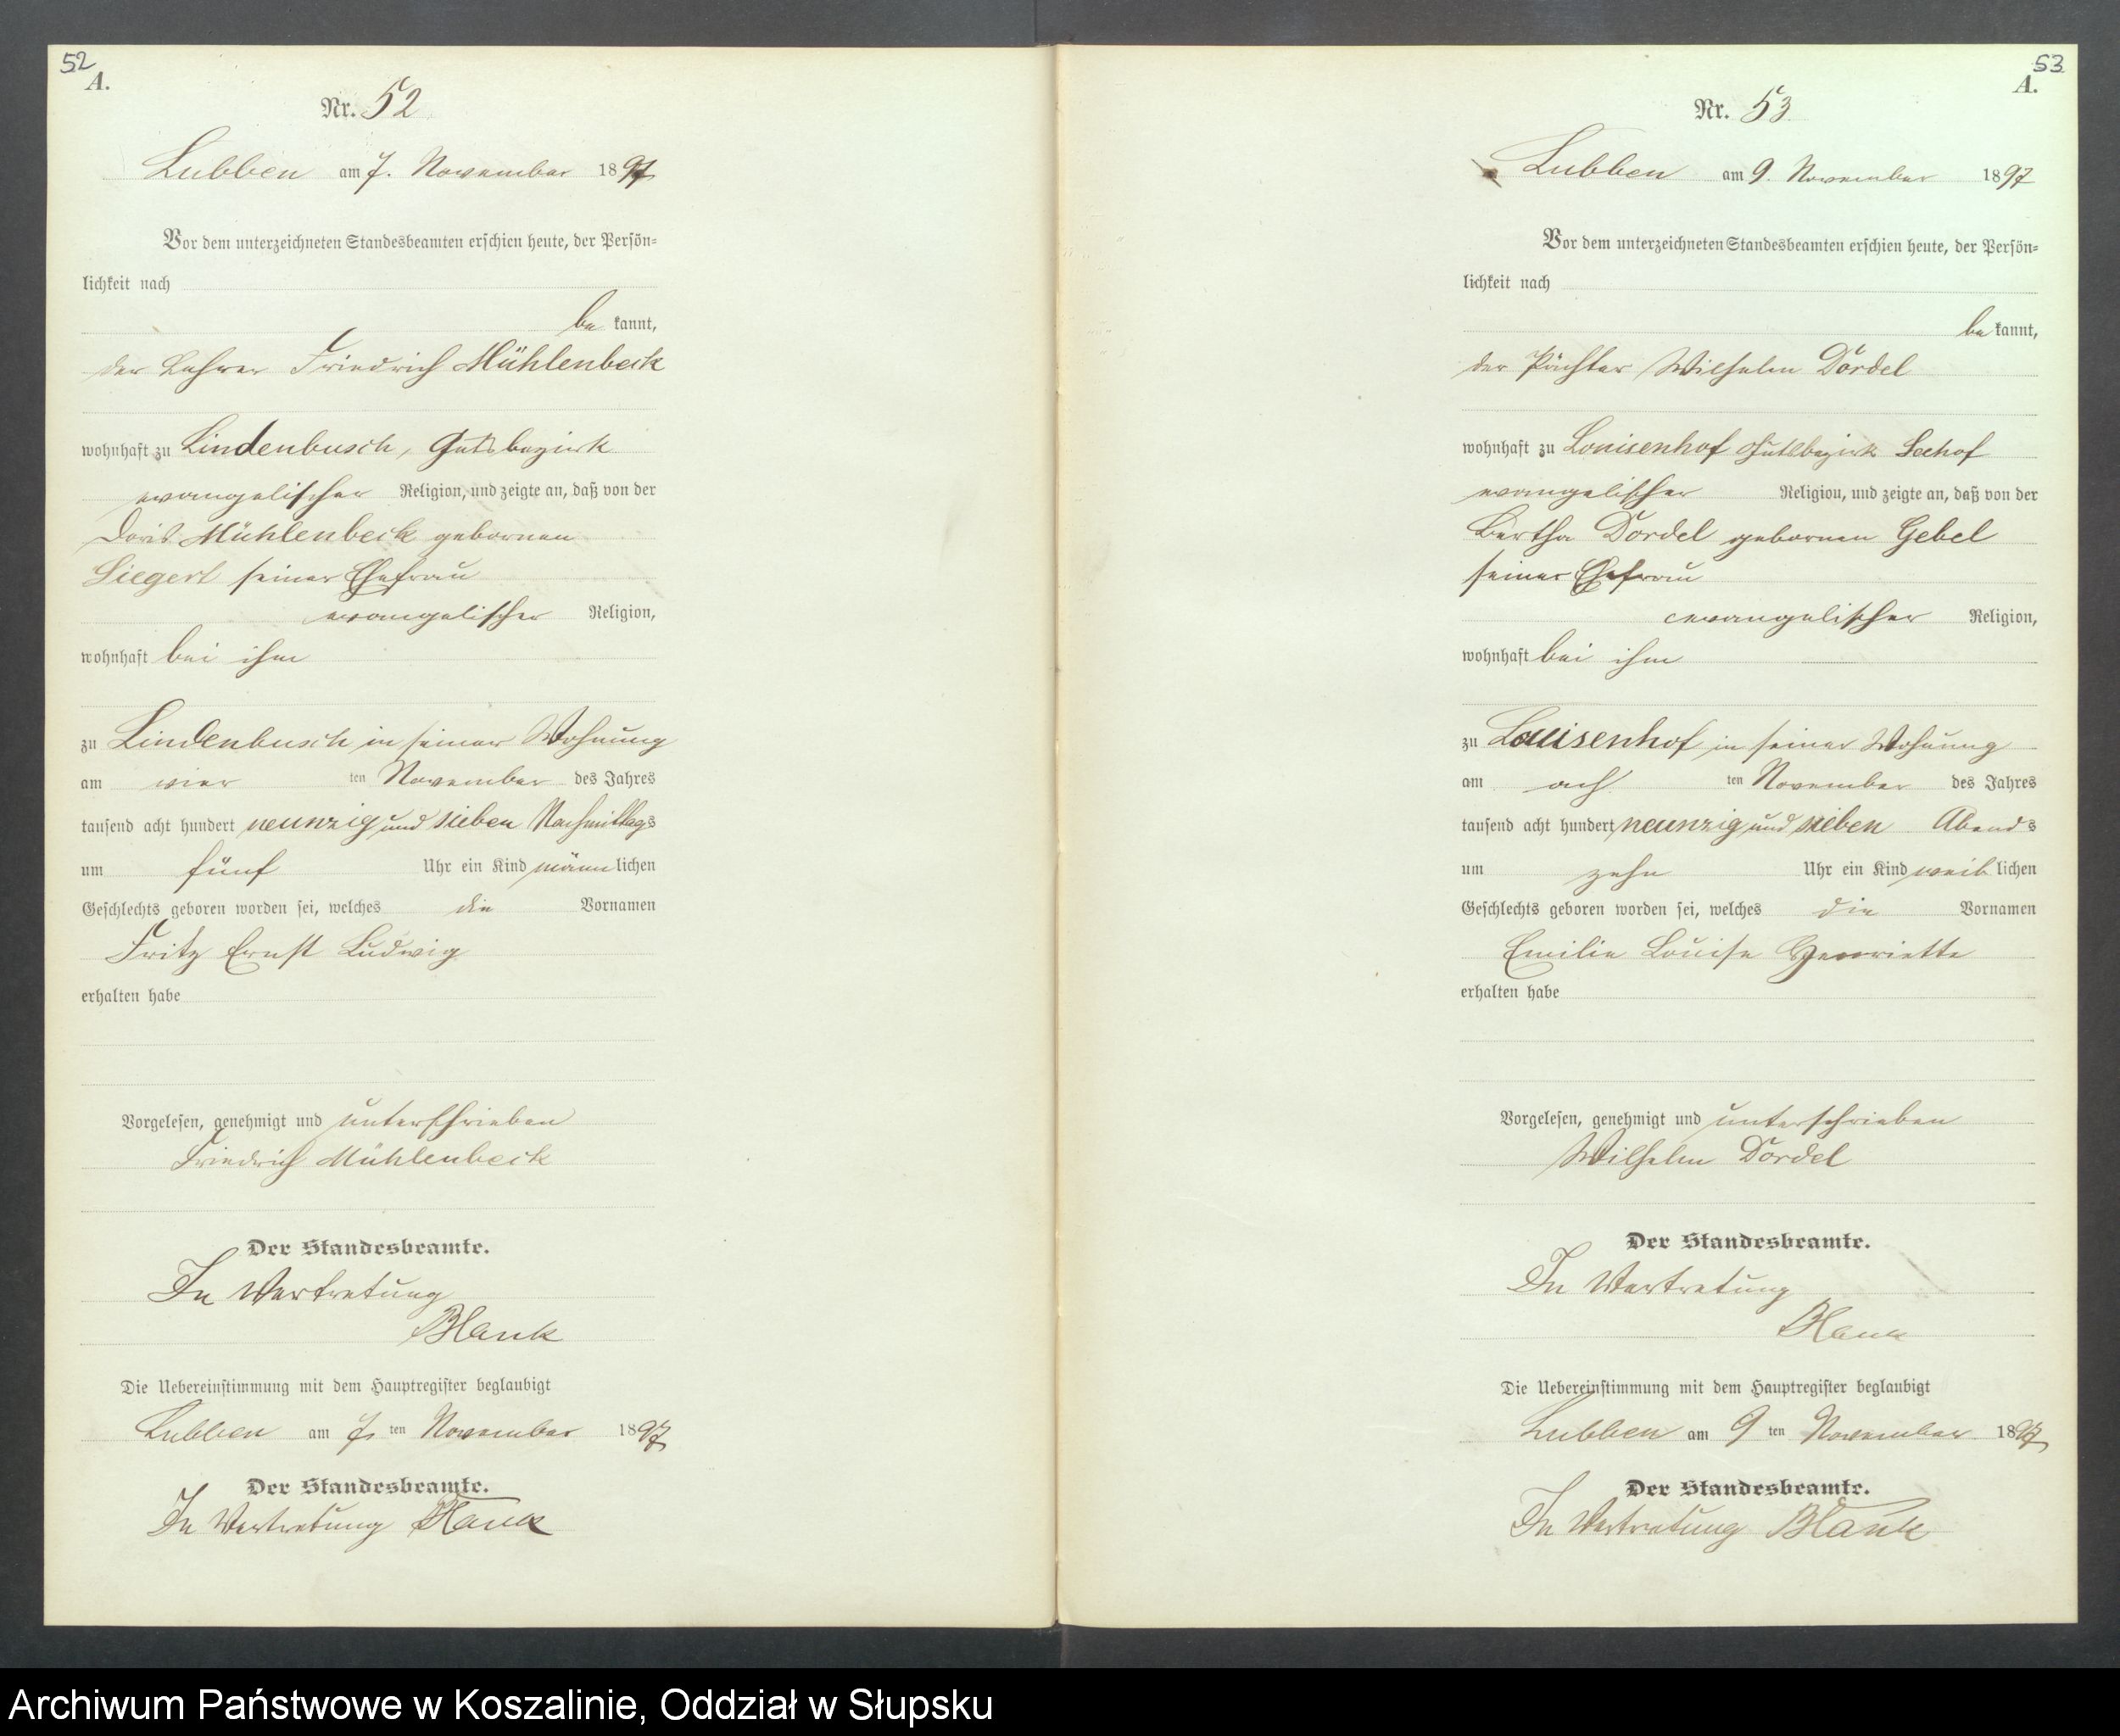 52
A.
Nr. 52
Lubben am 7. November 1897
Vor dem unterzeichneten Standesbeamten erschien heute, der Persön=
lichkeit nach
be kannt,
der Lehrer Friedrich Mühlenbeck
wohnhaft zu Lindenbusch, Gutsbezirk
evangelischer Religion, und zeigte an, daß von der
Doris Mühlenbeck gebornen
Siegert seiner Ehefrau
evangelischer Religion,
wohnhaft bei ihm
zu Lindenbusch in seiner Wohnung
am vier ten November des Jahres
tausend acht hundert neunzig und sieben Nachmittags
um fünf Uhr ein Kind männlichen
Geschlechts geboren worden sei, welches die Vornamen
Fritz Ernst Ludwig
erhalten habe
Vorgelesen, genehmigt und unterschrieben
Friedrich Mühlenbeck
Der Standesbeamte.
In Vertretung
Blank
Die Uebereinstimmung mit dem Hauptregister beglaubigt
Lubben am 7. ten November 1897
Der Standesbeamte.
In Vertretung Blank
53
A.
Nr. 53
Lubben am 9. November 1897
Vor dem unterzeichneten Standesbeamten erschien heute, der Persön=
lichkeit nach
be kannt,
der Pächter Wilhelm Dordel
wohnhaft zu Louisenhof Gutsbezirk Seehof
evangelischer Religion, und zeigte an, daß von der
Bertha Dordel gebornen Gebel
seiner Ehefrau
evangelischer Religion,
wohnhaft bei ihm
zu Louisenhof in seiner Wohnung
am ach ten November des Jahres
tausend acht hundert neunzig und sieben Abends
um zehn Uhr ein Kind weiblichen
Geschlechts geboren worden sei, welches die Vornamen
Emilie Louise Henriette
erhalten habe
Vorgelesen, genehmigt und unterschrieben
Wilhelm Dordel
Der Standesbeamte.
In Vertretung
Blank
Die Uebereinstimmung mit dem Hauptregister beglaubigt
Lubben am 9 ten November 1897
Der Standesbeamte.
In Vertretung Blank
Archiwum Państwowe w Koszalinie, Oddział w Słupsku